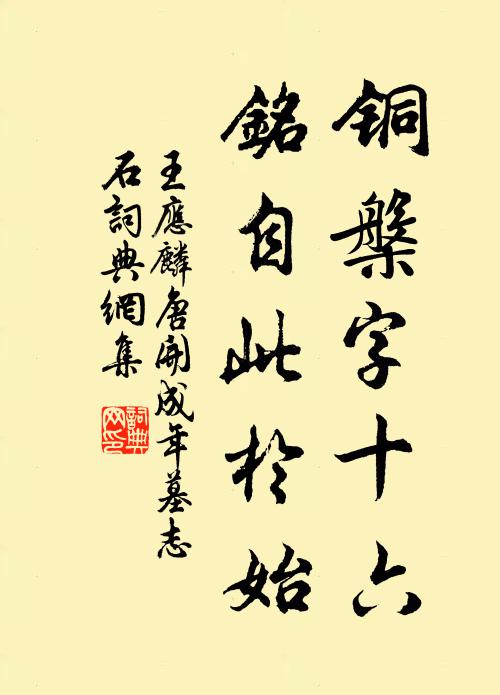 铜槃字十六
銘自此於始
王應麟唐開成年墓志
石詞典網集
詞典網印